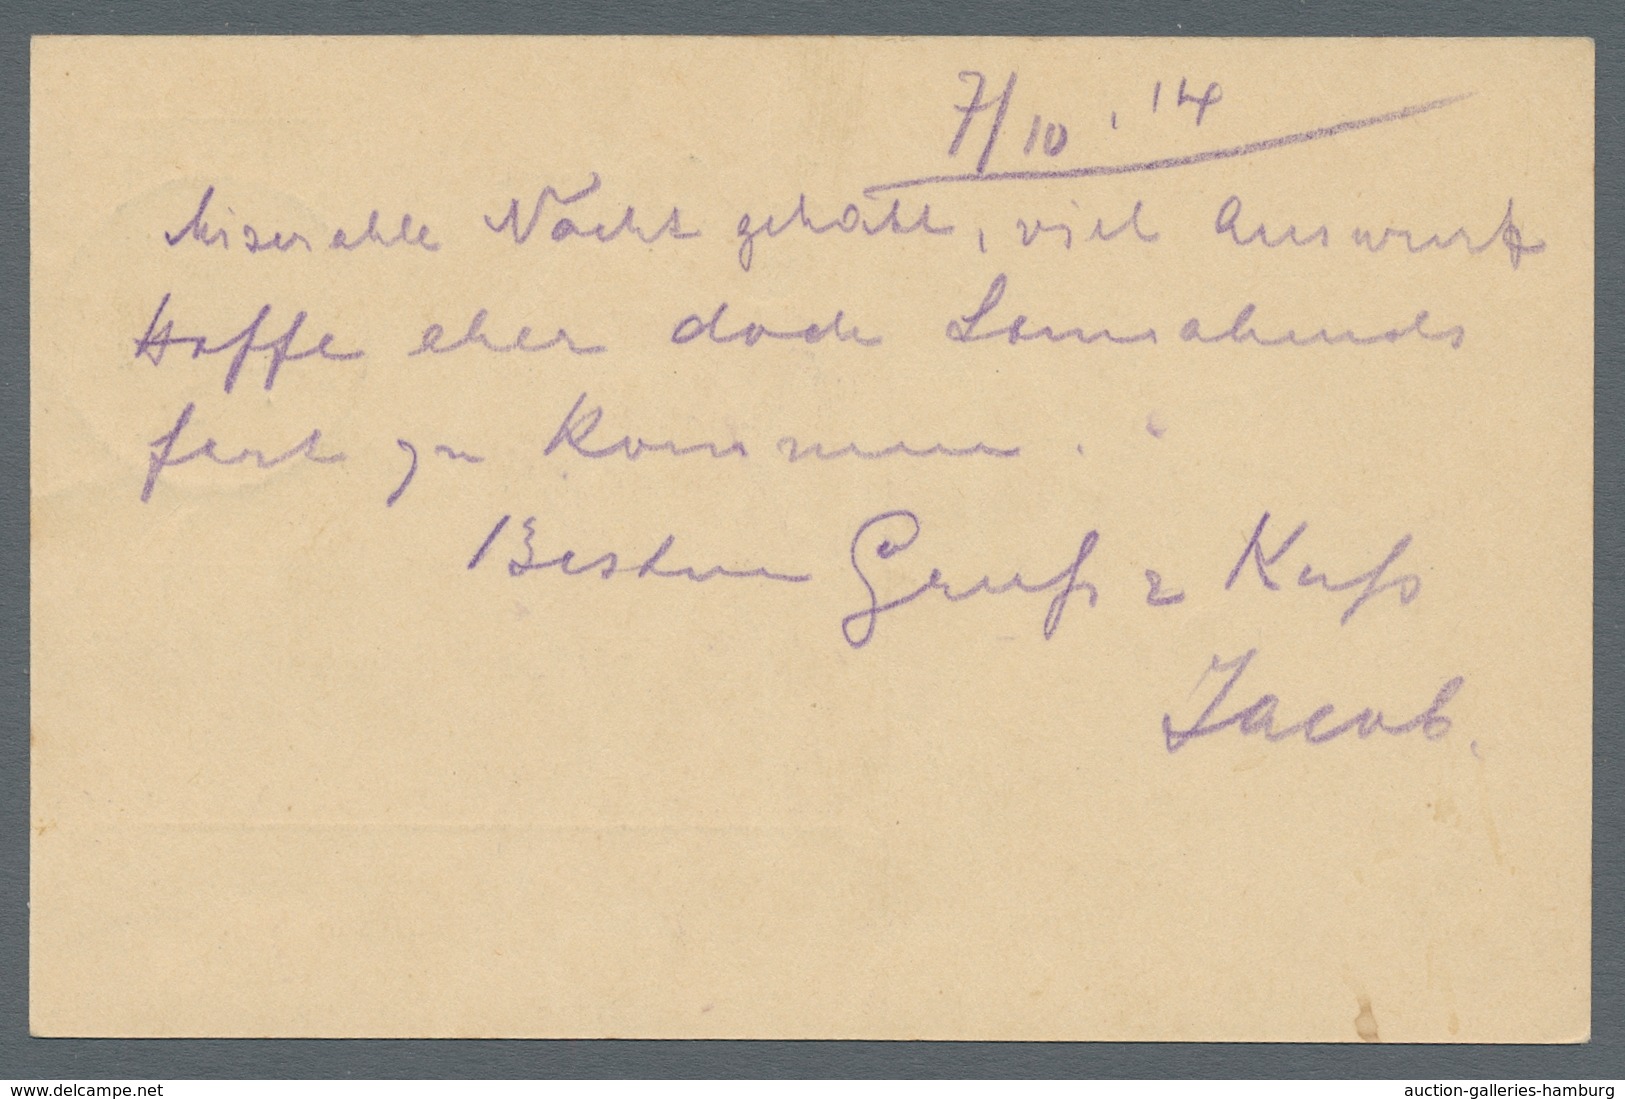 7/10.'14
Miserable Nacht gehabt, viel Auswurf
Hoffe aber doch Sonnabends
fort zu kommen.
Besten Gruß & Kuß
Jacob.
www.delcampe.net
auction-galleries-hamburg